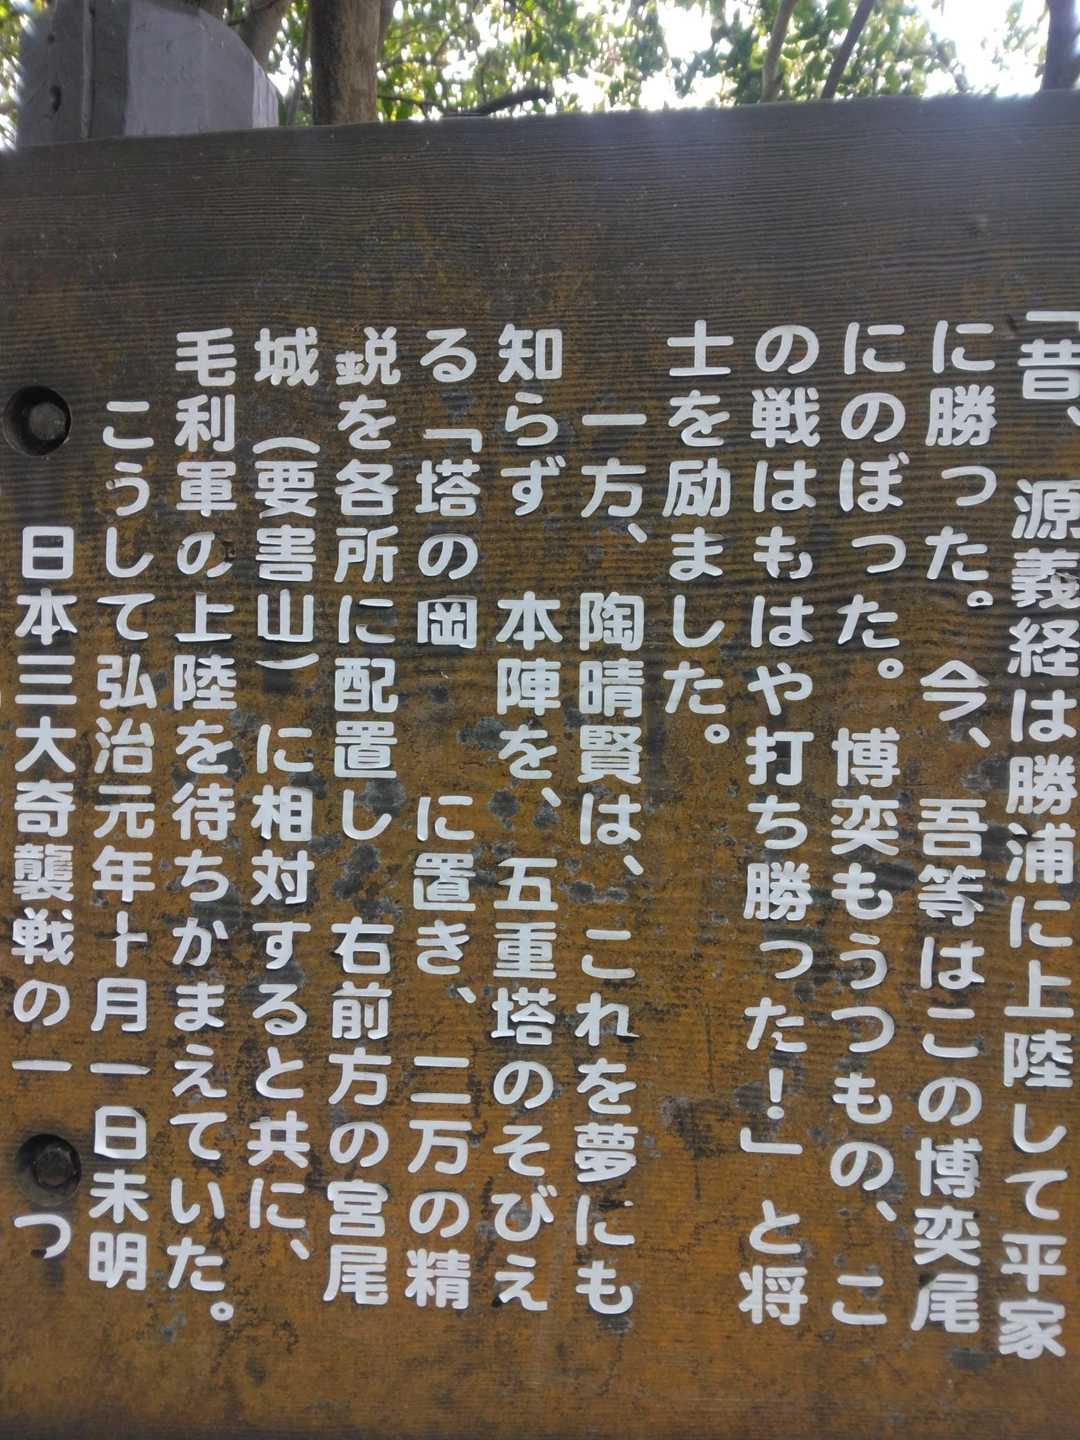 「昔、源義経は勝浦に上陸して平家
に勝った。今、吾等はこの博奕尾
にのぼった。博奕もうつもの、こ
の戦はもはや打ち勝った!」と将
士を励ました。
一方、陶晴賢は、これを夢にも
知らず 本陣を、五重塔のそびえ
る「塔の岡 に置き、二万の精
鋭を各所に配置し 右前方の宮尾
城(要害山)に相対すると共に、
毛利軍の上陸を待ちかまえていた。
こうして弘治元年十月一日未明
日本三大奇襲戦の一つ